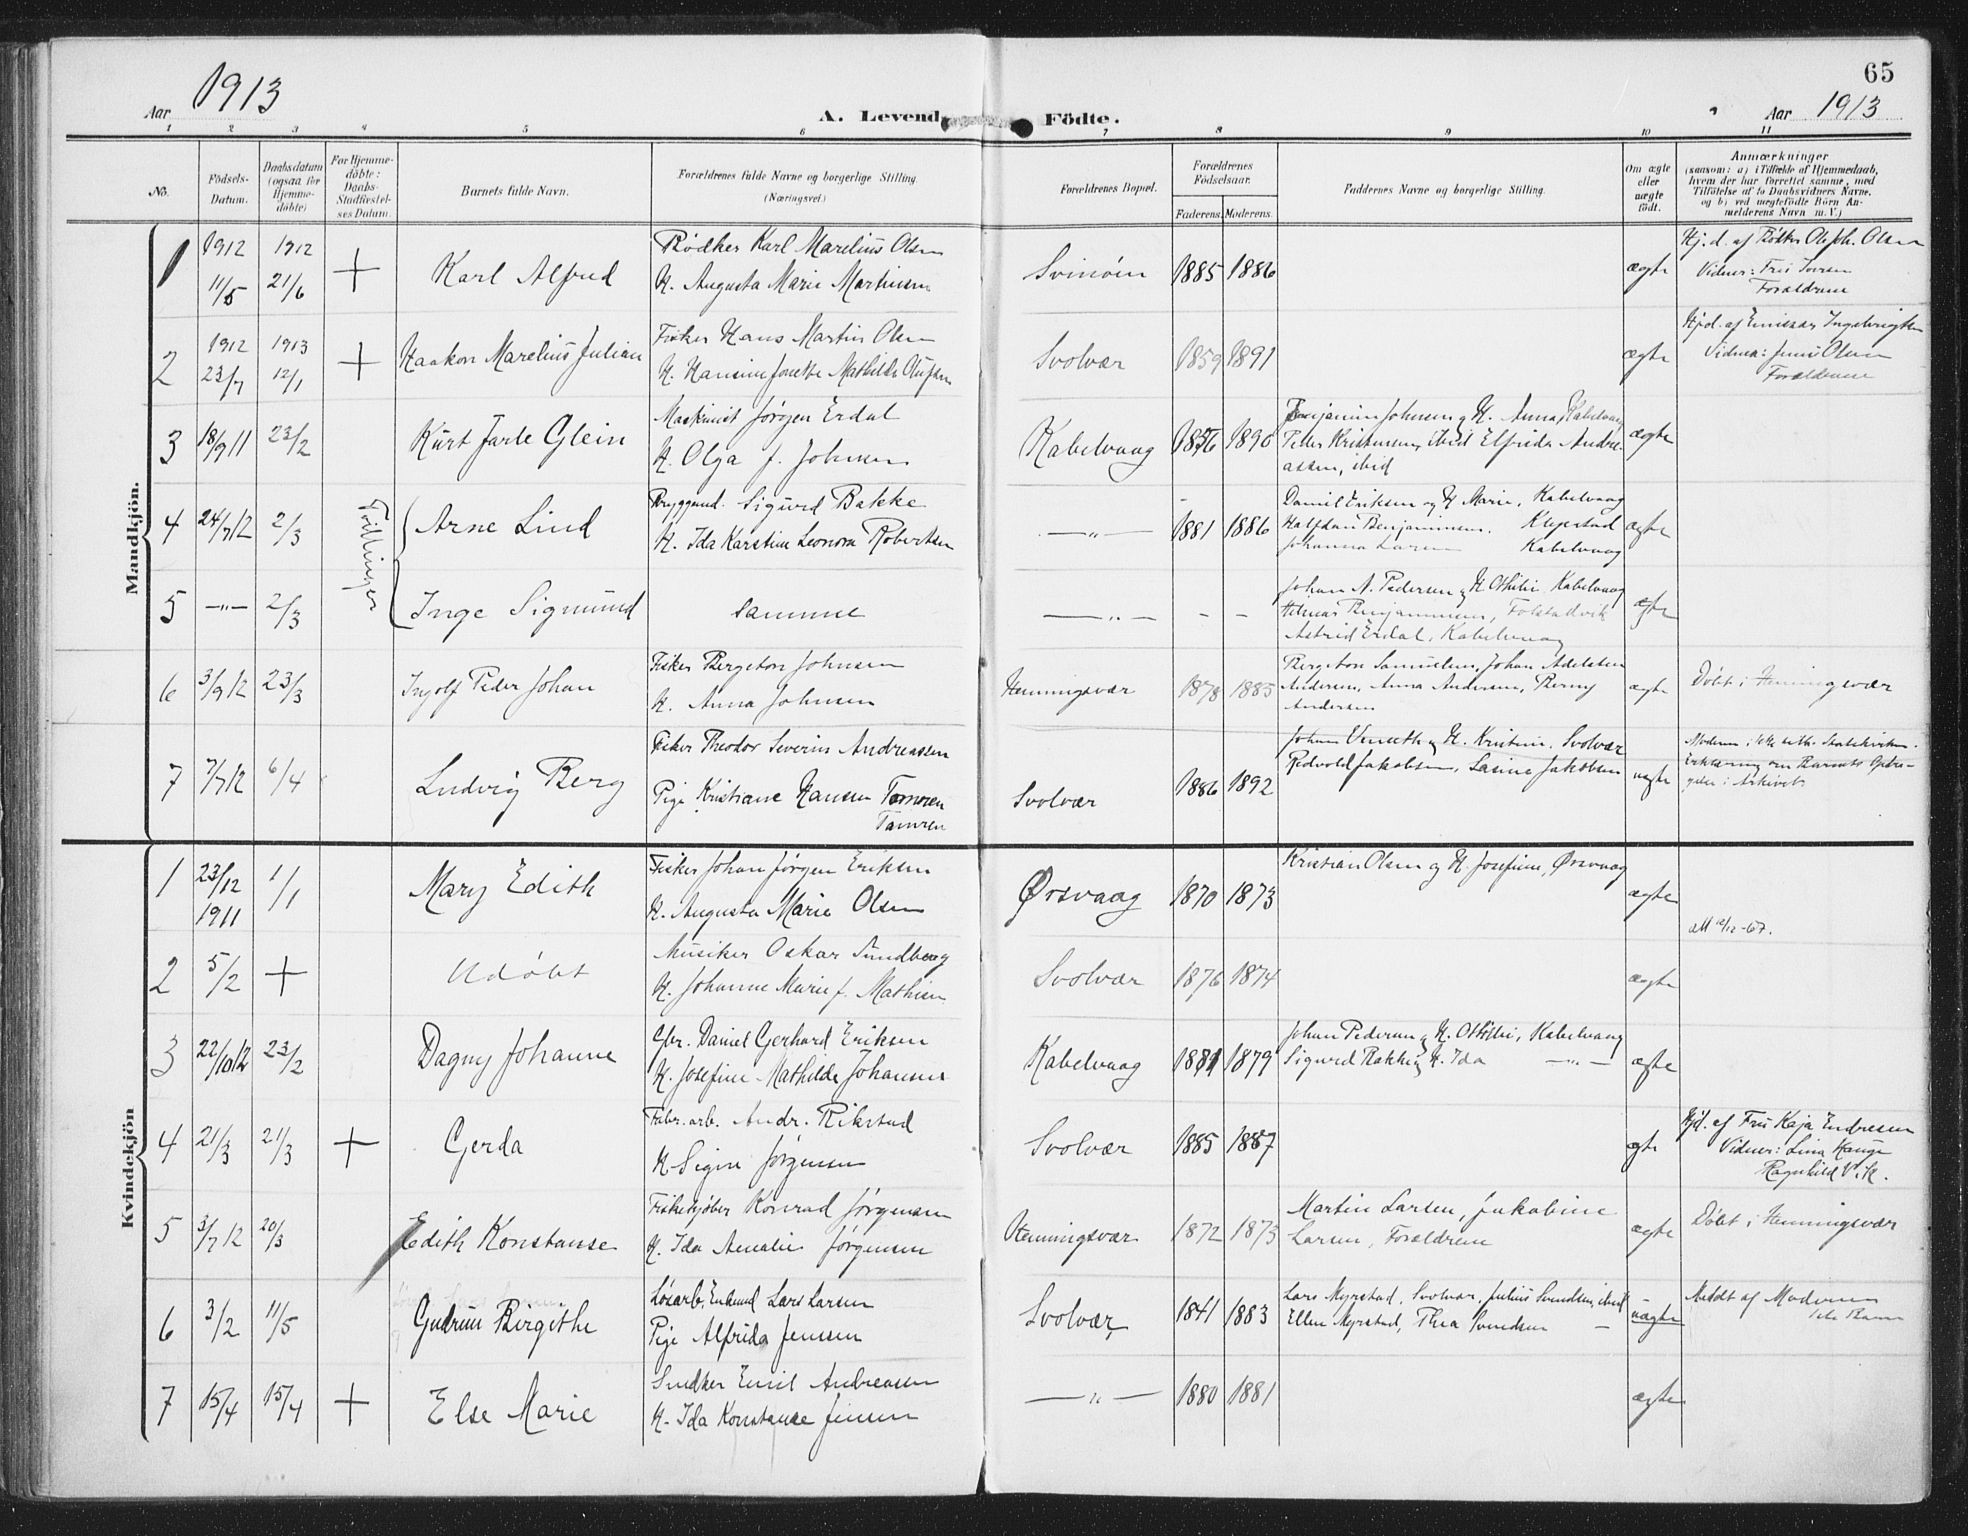 65
Aar 1913
A. Levende Födte.
Aar 1913
1 2 3 4 5 6 7 8 9 10 11
No.
Födsels-Datum.
Daabsdatum (ogsaa for Hjemme-döbte)
For Hjemme-döbte: Daabs-Stadfæstel-ses Datum.
Barnets fulde Navn.
Forældrenes fulde Navne og borgerlige Stilling. (Næringsvei.)
Forældrenes Bopæl.
Forældrenes Födselsaar.
Faderens. Moderens.
Faddernes Navne og borgerlige Stilling.
Om ægte eller uægte født.
Anmærkninger
(saasom: a) i Tilfælde af Hjemmedaab, hvem der har forrettet samme, med Tilföielse af to Daabsvidners Navne, og b) ved uægtefödte Börn An-melderens Navn m. V.)
Mandkjön.
1 1912 11/5 1912 21/6 + Karl Alfred
Bödker Karl Marelius Olsen
H. Augusta Marie Martinsen
Svinöen 1885 1886 ægte
Hj. d. af Bödker Ole Joh. Olsen
Vidner: Fru Iversen
Forældrene
2 1912 23/7 1913 12/1 + Haakon Marelius Julian
Fisker Hans Martin Olsen
H. Hansine Jonette Mathilde Olufsen
Svolvær 1859 1891 ægte
Hjd. af Emissær Ingebrigtsen
Vidner: Jens Olsen
Forældrene
3 18/9 11 23/2 Kurt Jarle Glein
Maskinist Jörgen Erdal
H. Olga f. Johnsen
Kabelvaag 1876 1890
Benjamin Johnsen og H. Anna, Kabelvaag
Peter Kristensen, ibid Elfrida Andre-
assen, ibid
ægte
4 24/7 12 2/3 Tvillinger Arne Lind
Bryggend. Sigurd Bakke
H. Ida Karstine Leonora Robertsen
—"— 1881 1886
Daniel Eriksen og H. Marie, Kabelvaag
Halfdan Benjaminsen. Klepstad
Johanna Larsen Kabelvaag
ægte
5 —"— 2/3 Inge Sigmund
samme
—"— – –
Johan A. Pedersen og H. Othilie Kabelvaag
Helmer Benjaminsen, Folstadvik
Astrid Erdal, Kabelvaag
ægte
6 3/9 12 23/3 Ingolf Peder Johan
Fisker Bergeton Johnsen
H. Anna Johnsen
Henningsvær 1878 1885
Bergeton Samuelsen, Johan Adelsten
Andersen, Anna Andersen, Berny
Andersen
ægte
Döbt i Henningsvær
7 7/7 12 6/4 Ludvig Berg
Fisker Theodor Severin Andreassen
Pige Kristiane Hansen Tamren
Tamren
Svolvær 1886 1892
Johan Venneth og H. Kristine, Svolvær
Redvold Jakobsen, Lasine Jakobsen
uægte
Moderen i ikke Statskirken.
Erklæring om Barnets Opdra-
gelse i Arkivet.
Kvindekjön
1 23/12 1911 1/1 Mary Edith
Fisker Johan Jörgen Eriksen
H. Augusta Marie Olsen
Ørsvaag 1870 1873
Kristian Olsen og H. Josefine, Ørsvaag
ægte
att 12/12-67.
2 5/2 + Udöbt
Musiker Oskar Sundberg
H. Johanne Marie f. Mathisen
Svolvær 1876 1874 ægte
3 22/10 12 23/2 Dagny Johanne
Gbr. Daniel Gerhard Eriksen
H. Josefine Mathilde Johansen
Kabelvaag 1881 1879
Johan Pedersen og H. Othilie, Kabelvaag
Sigurd Bakke og H. Ida —"—
ægte
4 21/3 21/3 + Gerda
Fabr. arb. Andr. Rikstad
H. Signe Jörgensen
Svolvær 1885 1887 ægte
Hjd. af Fru Kaja Endresen
Vidner: Lina Hauge
Ragnhild Vik.
5 3/7 12 20/3 Edith Konstanse
Fiskekjöber Konrad Jörgensen
H. Ida Amalie Jörgensen
Henningsvær 1872 1873
Martin Larsen, Jakobine
Larsen, Forældrene
ægte
Döbt i Henningsvær
6 3/2 11/5 Gudrun Birgithe
Lösarb. Enkemd Lars Larsen
Pige Alfrida Jensen
Svolvær 1841 1883
Lars Myrstad, Svolvær, Julius Svendsen, ibid
Ellen Myrstad, Thea Svendsen —
uægte
Meldt af Moderen
7 15/4 15/4 + Else Marie
Snedker Emil Andreasen
H. Ida Konstanse Jensen
—"— 1880 1881 ægte